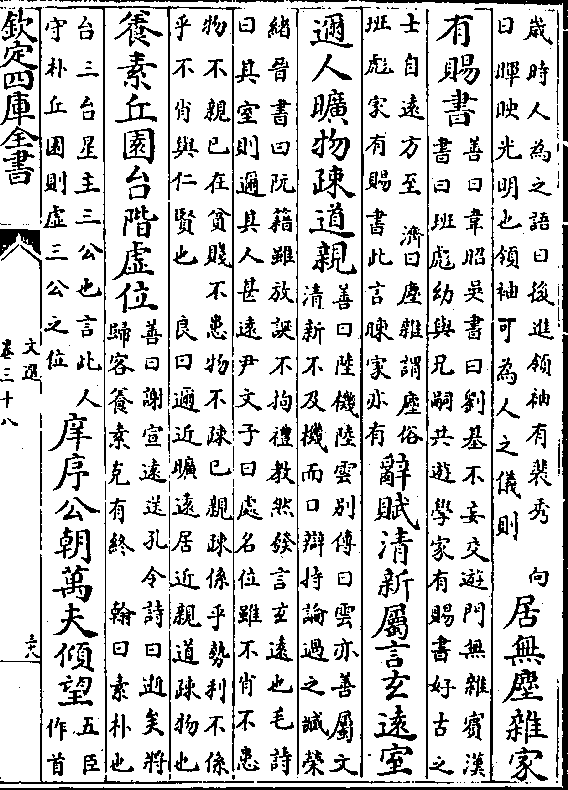 歳時人為之語曰後進領袖有裴秀 向
曰暉映光明也領袖可為人之儀則
居無塵雜家
有賜書
善曰韋昭吳書曰劉基不妄交遊門無雜賓漢
書曰班彪幼與兄嗣共遊學家有賜書好古之
士自遠方至 濟曰塵雜謂塵俗
班彪家有賜書此言暕家亦有
辭賦清新屬言玄遠室
邇人曠物疎道親
善曰陸機陸雲别傳曰雲亦善屬文
清新不及機而口辯持論過之臧榮
緒晉書曰阮籍雖放誕不拘禮教然發言玄遠也毛詩
曰其室則邇其人甚遠尹文子曰處名位雖不肖不患
物不親已在貧賤不患物不疎已親疎係乎勢利不係
乎不肖與仁賢也 良曰邇近曠遠居近親道疎物也
養素丘園台階虛位
善曰謝宣遠送孔令詩曰逝矣將
歸客養素克有終 翰曰素朴也
台三台星主三公也言此人
守朴丘園則虛三公之位
庠序公朝萬夫傾望
五臣
作首
欽定四庫全書
文選
卷三十八